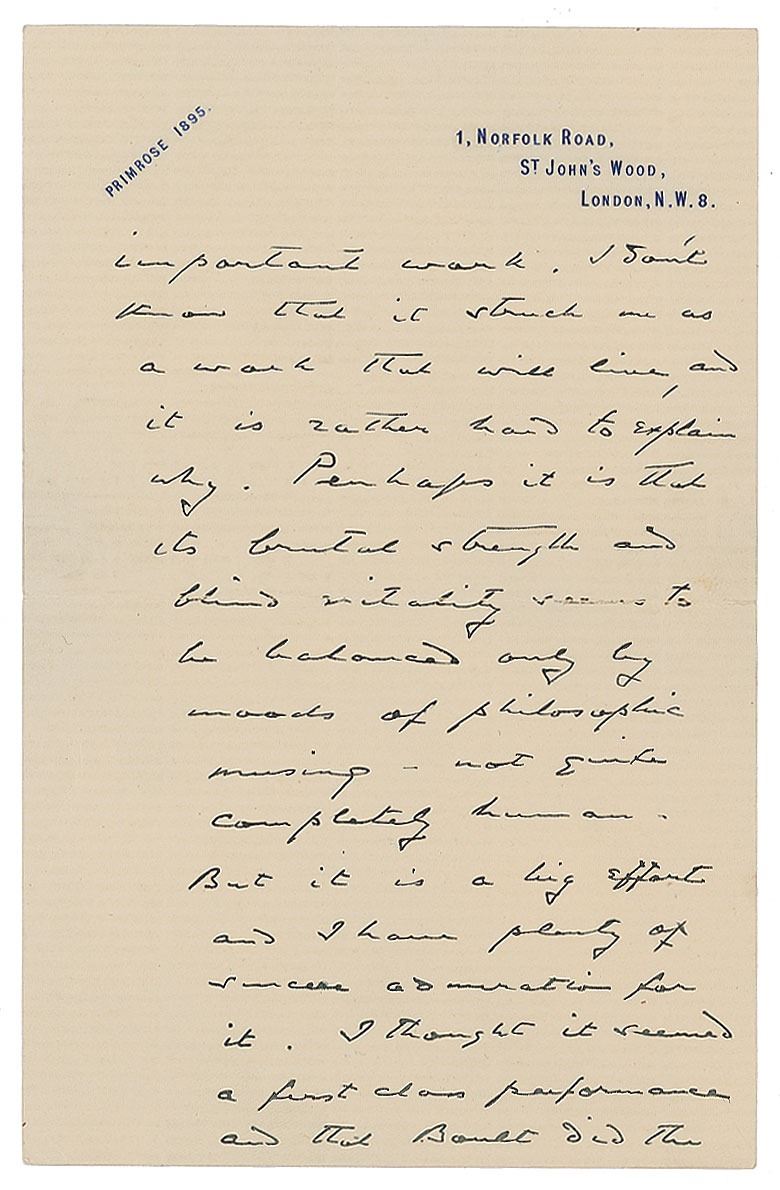 PRIMROSE 1895.
1, NORFOLK ROAD,
ST JOHN'S WOOD,
LONDON, N.W. 8.
important work. I don't
know that it struck me as
a work that will live, and
it is rather hard to explain
why. Perhaps it is that
its brutal strength and
blind vitality seems to
be balanced only by
moods of philosophic
musing - not quite
completely human.
But it is a big effort
and I have plenty of
sincere admiration for
it. I thought it seemed
a first class performance
and that Boult did the